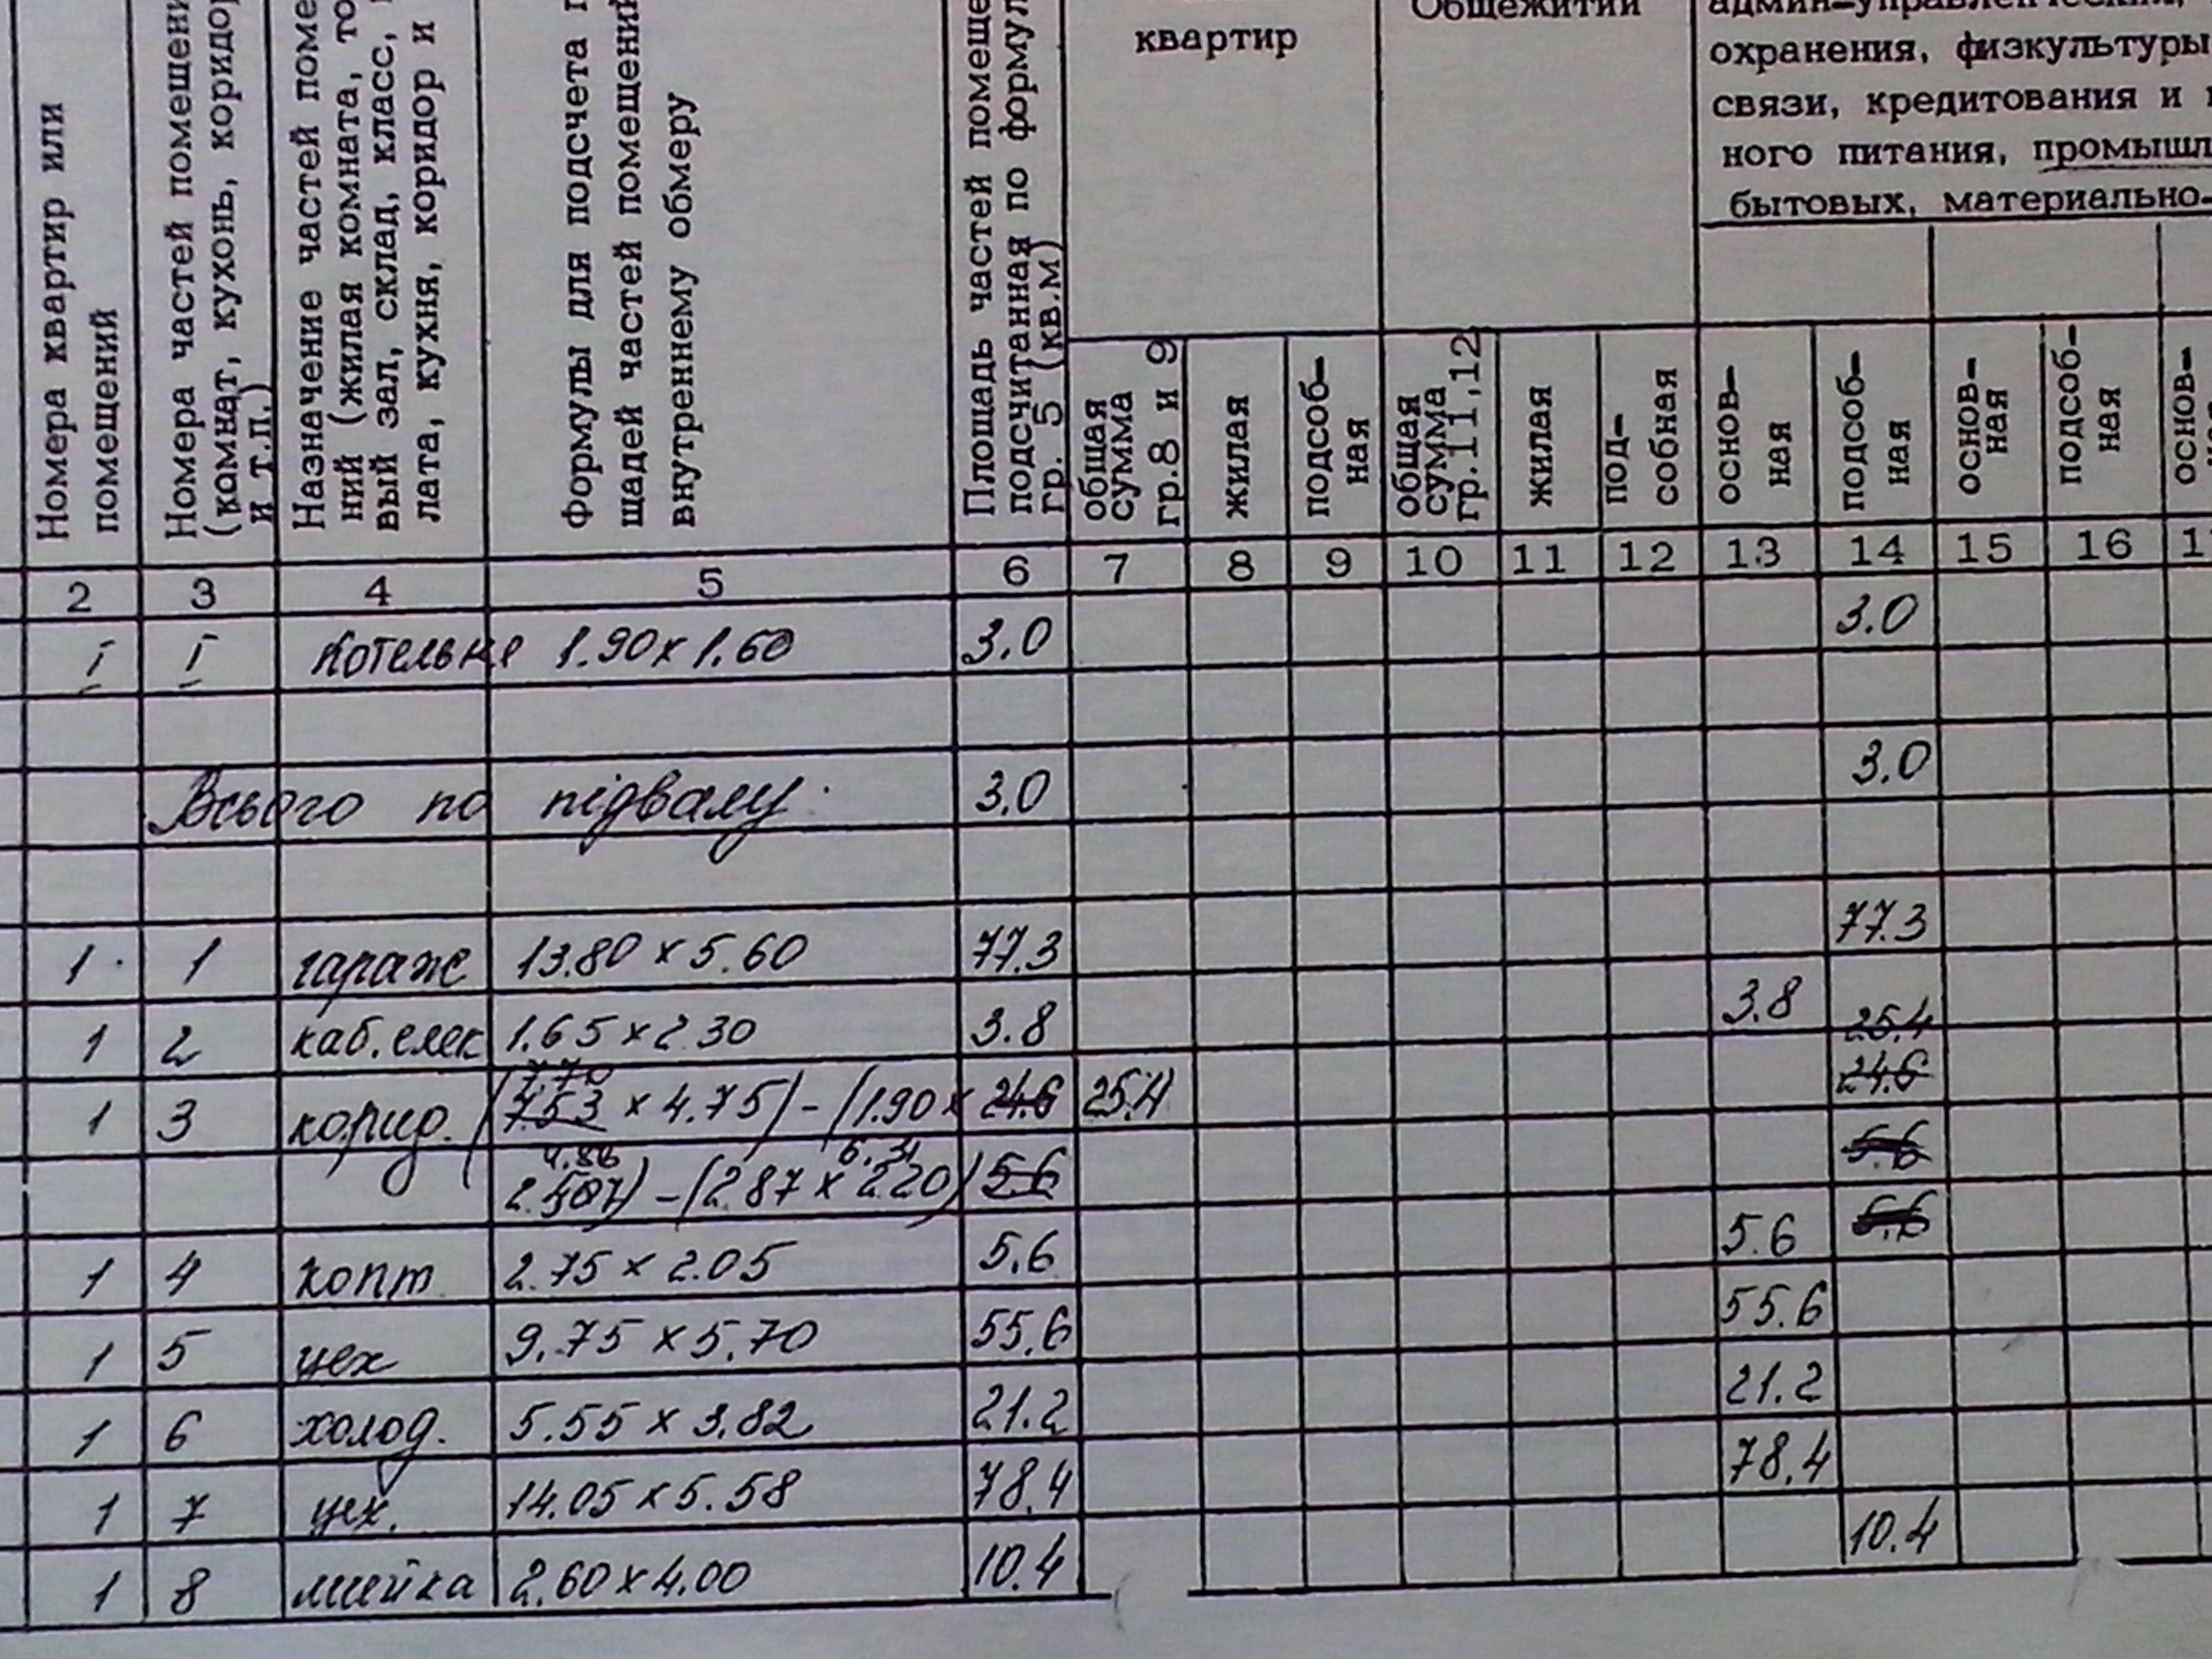 Номера квартир или
помещений
Номера частей помещени
(комнат, кухонь, коридор
и т.п.)
Назначение частей поме
ний (жилая комната, то
вый зал, склад, класс,
лата, кухня, коридор и
Формулы для подсчета п
щадей частей помещений
внутреннему обмеру
Площадь частей помеще
подсчитанная по формул
гр. 5 (кв.м)
квартир
Общежитий
админ-управленческих,
охранения, физкультуры
связи, кредитования и
ного питания, промышл
бытовых, материально-
общая
сумма
гр.8 и 9
жилая
подсоб-
ная
общая
сумма
гр.11,12
жилая
под-
собная
основ-
ная
подсоб-
ная
основ-
ная
подсоб-
ная
основ-
2 3 4 5 6 7 8 9 10 11 12 13 14 15 16 1
I I Котельня 1.90 х 1.60 3.0 3.0
Всього по підвалу: 3.0 3.0
1. 1 гараж 13.80 х 5.60 77.3 77.3
1 2 каб. елек 1.65 х 2.30 3.8 3.8
25.4
7.70
1 3 корид. (7.53 х 4.75) - (1.90 х 24.6 25.4 24.6
4.86 6.31
2.507) - (2.87 х 2.20) 5.6 5.6
1 4 копт 2.75 х 2.05 5.6 5.6 5.6
1 5 цех 9.75 х 5.70 55.6 55.6
1 6 холод. 5.55 х 3.82 21.2 21.2
1 7 цех. 14.05 х 5.58 78.4 78.4
1 8 мийка 2.60 х 4.00 10.4 10.4